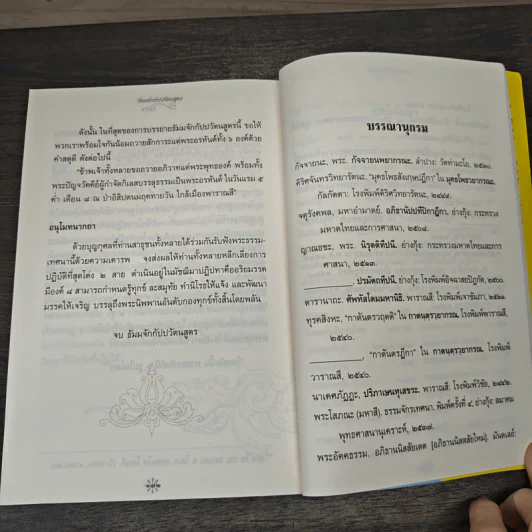 ธัมมจักกัปปวัตนสูตร
ดังนั้น ในที่สุดของการบรรยายธัมมจักกัปปวัตนสูตรนี้ ขอให้
พวกเราพร้อมใจกันน้อมถวายสักการะแด่พระอรหันต์ทั้ง ๖ องค์ด้วย
คำสดุดี ดังต่อไปนี้
"ข้าพเจ้าทั้งหลายขอถวายอภิวาทแด่พระพุทธองค์ พร้อมทั้ง
พระปัญจวัคคีย์ผู้กำจัดกิเลสบรรลุธรรมเป็นพระอรหันต์ ในวันแรม ๕
ค่ำ เดือน ๘ ณ ป่าอิสิปตนมฤคทายวัน ใกล้เมืองพาราณสี"
อนุโมทนากถา
ด้วยบุญกุศลที่ท่านสาธุชนทั้งหลายได้ร่วมกันรับฟังพระธรรม-
เทศนานี้ด้วยความเคารพ จงส่งผลให้ท่านทั้งหลายหลีกเลี่ยงการ
ปฏิบัติที่สุดโต่ง ๒ สาย ดำเนินอยู่ในมัชฌิมาปฏิปทาคืออริยมรรค
มีองค์ ๘ สามารถกำหนดรู้ทุกข์ ละสมุทัย ทำนิโรธให้แจ้ง และพัฒนา
มรรคให้เจริญ บรรลุถึงพระนิพพานอันดับกองทุกข์ทั้งสิ้นโดยพลัน
จบ ธัมมจักกัปปวัตนสูตร
บรรณานุกรม
กัจจายนะ, พระ. กัจจายนพยากรณะ. ลำปาง: วัดท่ามะโอ,
คิริศจันทรวิทยารัตนะ. "พุทโธภสังคเษปฎีกา" ใน มุคธโพธวยากรณะ.
กัลกัตตา: โรงพิมพ์คิริศวิทยารัตนะ, ๒๔๔๙.
จตุรังคพล, มหาอำมาตย์. อภิธานัปปทีปิกาฎีกา. ย่างกุ้ง: กระทรวง
มหาดไทยและการศาสนา, ๒๕๐๘.
ญาณธชะ, พระ. นิรุตติทีปนี. ย่างกุ้ง: กระทรวงมหาดไทยและการ
ศาสนา, ๒๕๑๓.
________. ปรมัตถทีปนี. ย่างกุ้ง: โรงพิมพ์อิจฉาสยปิฎกัต, ๒๕๐๐.
ตารานาถะ. ศัพทัสโตมมหานิธิ. พาราณสี: โรงพิมพ์เจาขัมภา, ๒๕๑๐.
ทุรคสิงหะ, "กาตันตรวฤตติ" ใน กาตนฺตฺรวฺยากรณ. โรงพิมพ์พาราณสี,
๒๕๔๐.
________, "กาตันตรฎีกา" ใน กาตนฺตฺรวฺยากรณ. โรงพิมพ์
วาราณสี, ๒๕๔๐.
นาเคศภัฏฏะ, ปริภาเษนทุเสขระ. พาราณสี: โรงพิมพ์วิชัย,
พระโสภณะ (มหาสี). ธรรมจักรเทศนา. พิมพ์ครั้งที่ ๔. ย่างกุ้ง: สมาคม
พุทธศาสนานุเคราะห์, ๒๕๓๗.
พระอัคคธรรม. อภิธานนิสสัยเดต [อภิธานนิสสสัยใหม่]. มันดเลย์: